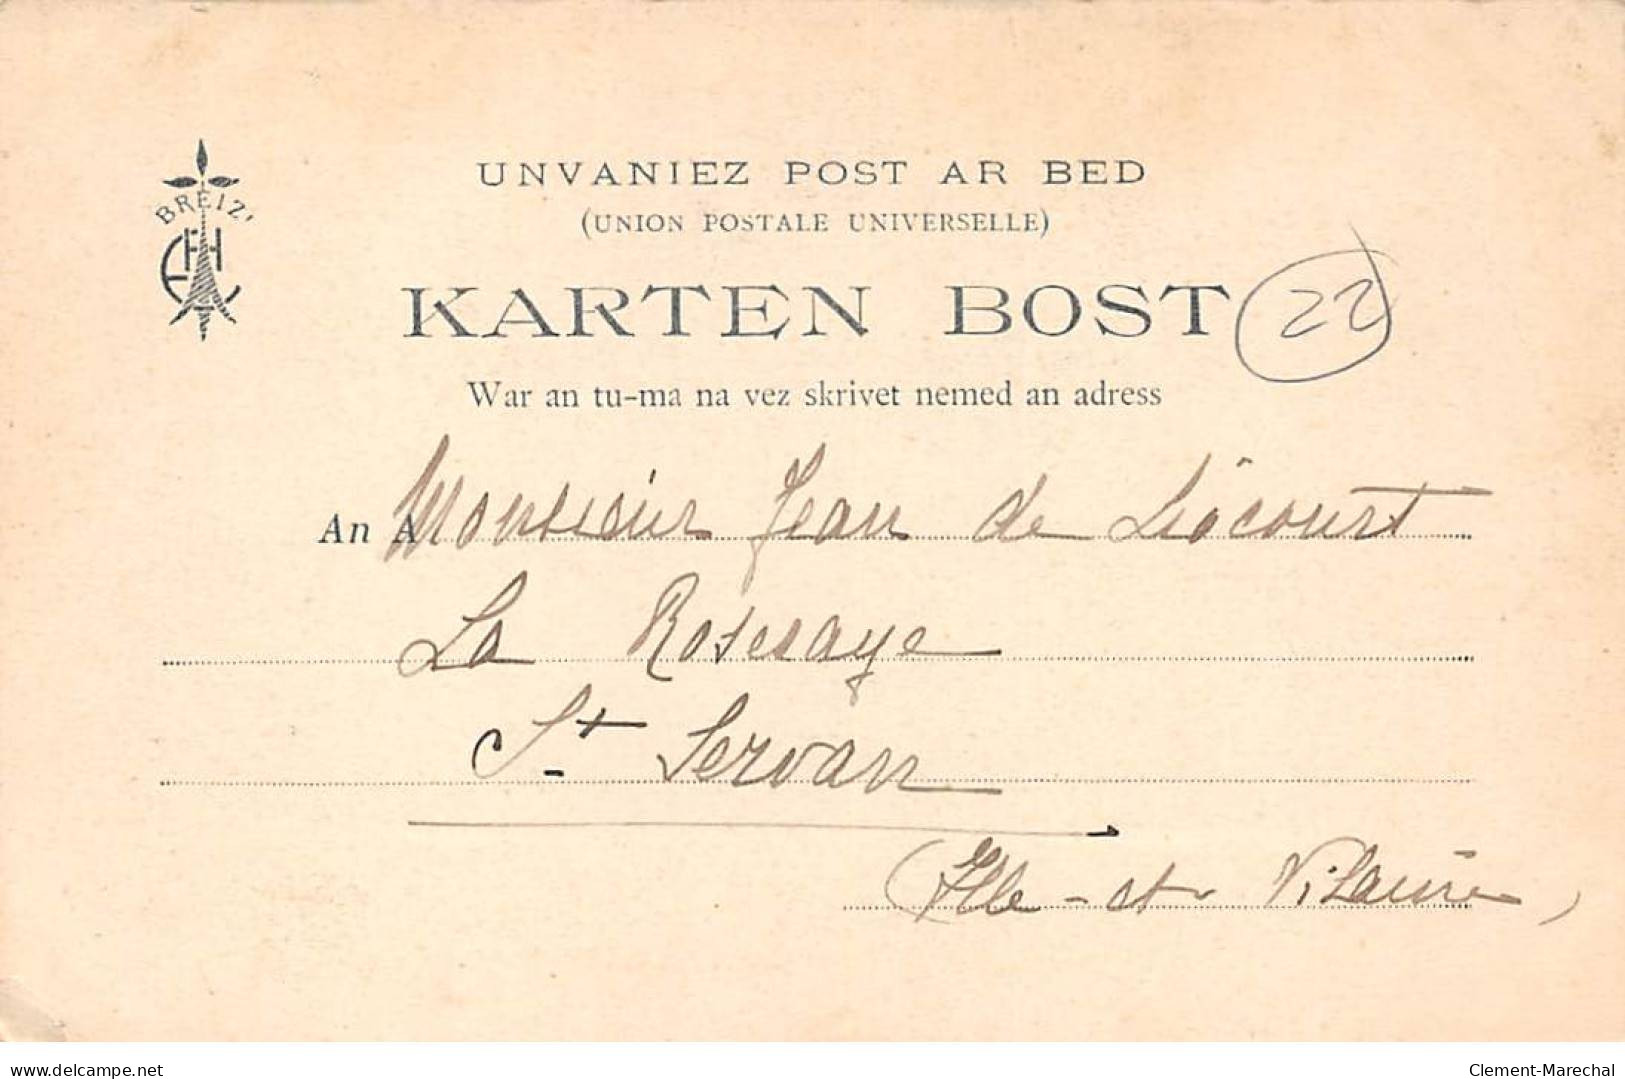 BREIZ
UNVANIEZ POST AR BED
(UNION POSTALE UNIVERSELLE)
KARTEN BOST
22
War an tu-ma na vez skrivet nemed an adress
An A Monsieur Jean de Liocourt
La
St Servan
(Ille-et-Vilaine)
www.delcampe.net
Clement-Marechal